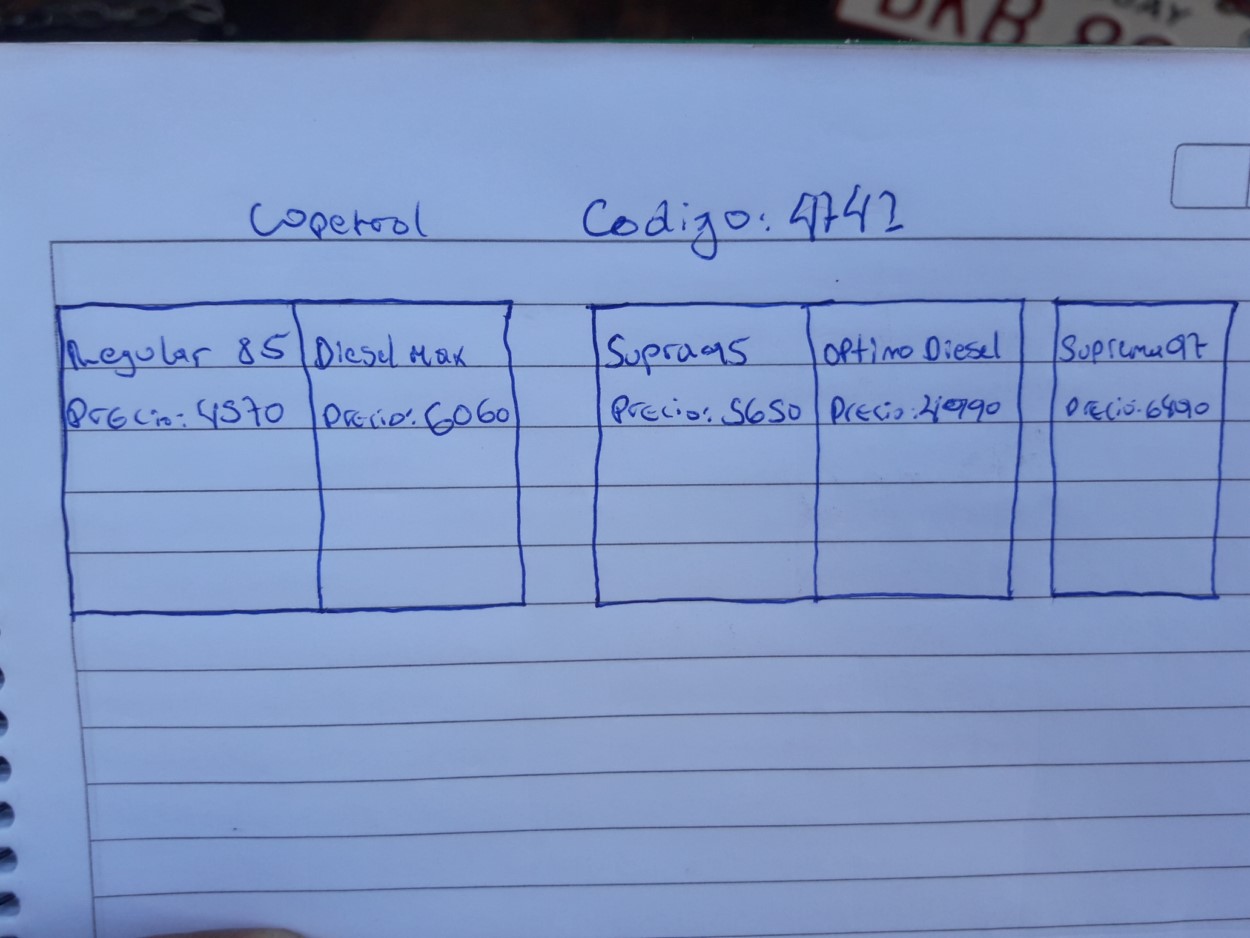 DKB
Coperol Codigo: 4742
Regular 85 Diesel Max Supra 95 Optimo Diesel Suprema 97
Precio: 4570 Precio: 6060 Precio: 5650 Precio: Precio: 6490